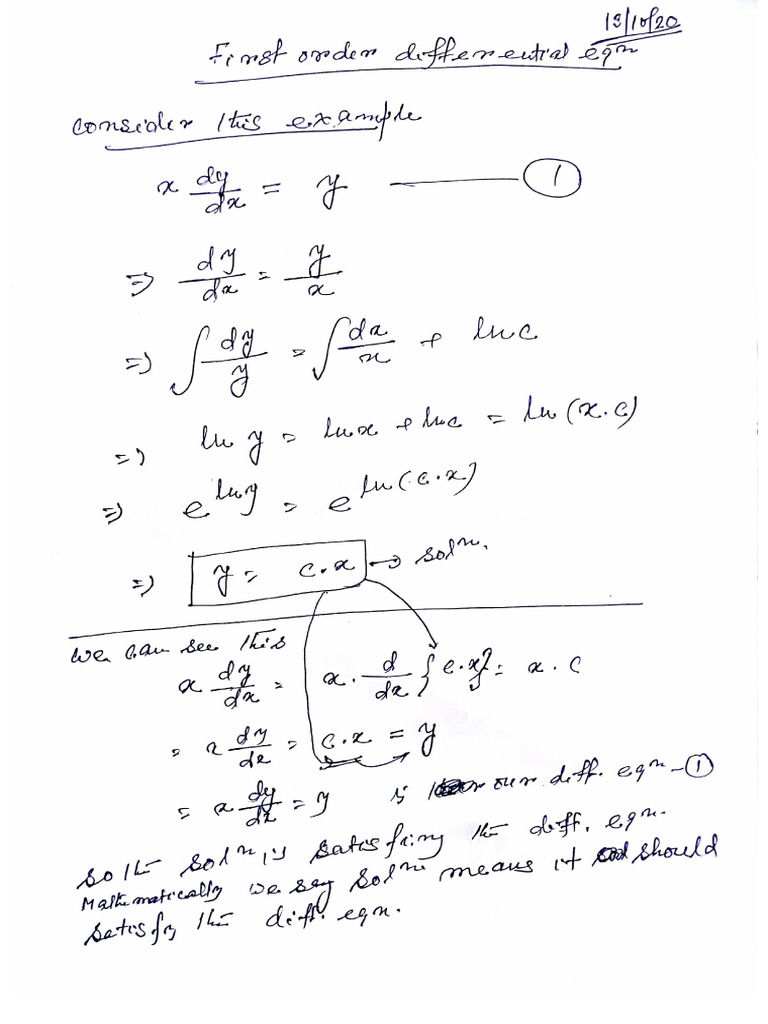 13/10/20
First order differential eqn
Consider this example
x dy/dx = y ——— ①
=> dy/dx = y/x
=> ∫ dy/y = ∫ dx/x + ln c
=> ln y = ln x + ln c = ln (x.c)
=> e^{ln y} = e^{ln (c.x)}
=> y = c.x → soln.
we can see this
x dy/dx = x. d/dx {c.x} = x.c
= x dy/dx = c.x = y
= x dy/dx = y is our diff. eqn - ①
So the soln is satisfying the diff. eqn.
Mathematically we say soln means it should
satisfy the diff. eqn.